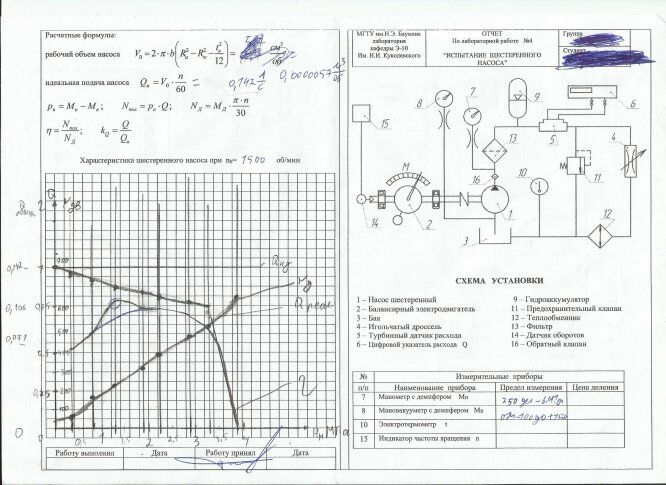 Расчетные формулы:
рабочий объем насоса V₀=2·π·b(R²ₐ−R²w−t²₀/12)= см³/об
идеальная подача насоса Qн=V₀·n/60 = 0,142 л/с 0,0000057 м³/об
pн=Mн−Mв; Nпол=pн·Q; NД=MД·π·n/30
η=Nпол/NД; kQ=Q/Qн
Характеристика шестеренного насоса при n₀= 1500 об/мин
Q
0,142
0,106
0,071
0
1
0,75
0,5
0,25
0,5 1 1,5 2 2,5 3 3,5 4 Pн, МПа
Qид
Nд
Qреал
η
Работу выполнил Дата Работу принял Дата
МГТУ им.Н.Э. Баумана
лаборатория
кафедры Э-10
Им. И.И. Куколевского
ОТЧЕТ
По лабораторной работе №4
"ИСПЫТАНИЕ ШЕСТЕРЕННОГО
НАСОСА"
Группа
Студент
8
7
9
6
15
13
5
4
M
16
10
11
14
2
1
3
12
СХЕМА УСТАНОВКИ
1 – Насос шестеренный
2 – Балансирный электродвигатель
3 – Бак
4 – Игольчатый дроссель
5 – Турбинный датчик расхода
6 – Цифровой указатель расхода Q
9 – Гидроаккумулятор
11 – Предохранительный клапан
12 – Теплообменник
13 – Фильтр
14 – Датчик оборотов
16 – Обратный клапан
№ п/п Измерительные приборы
Наименование прибора Предел измерения Цена деления
7 Манометр с демпфером Mн 250 дел – 6 МПа
8 Мановакууметр с демпфером Mв
10 Электротермометр t
15 Индикатор частоты вращения n